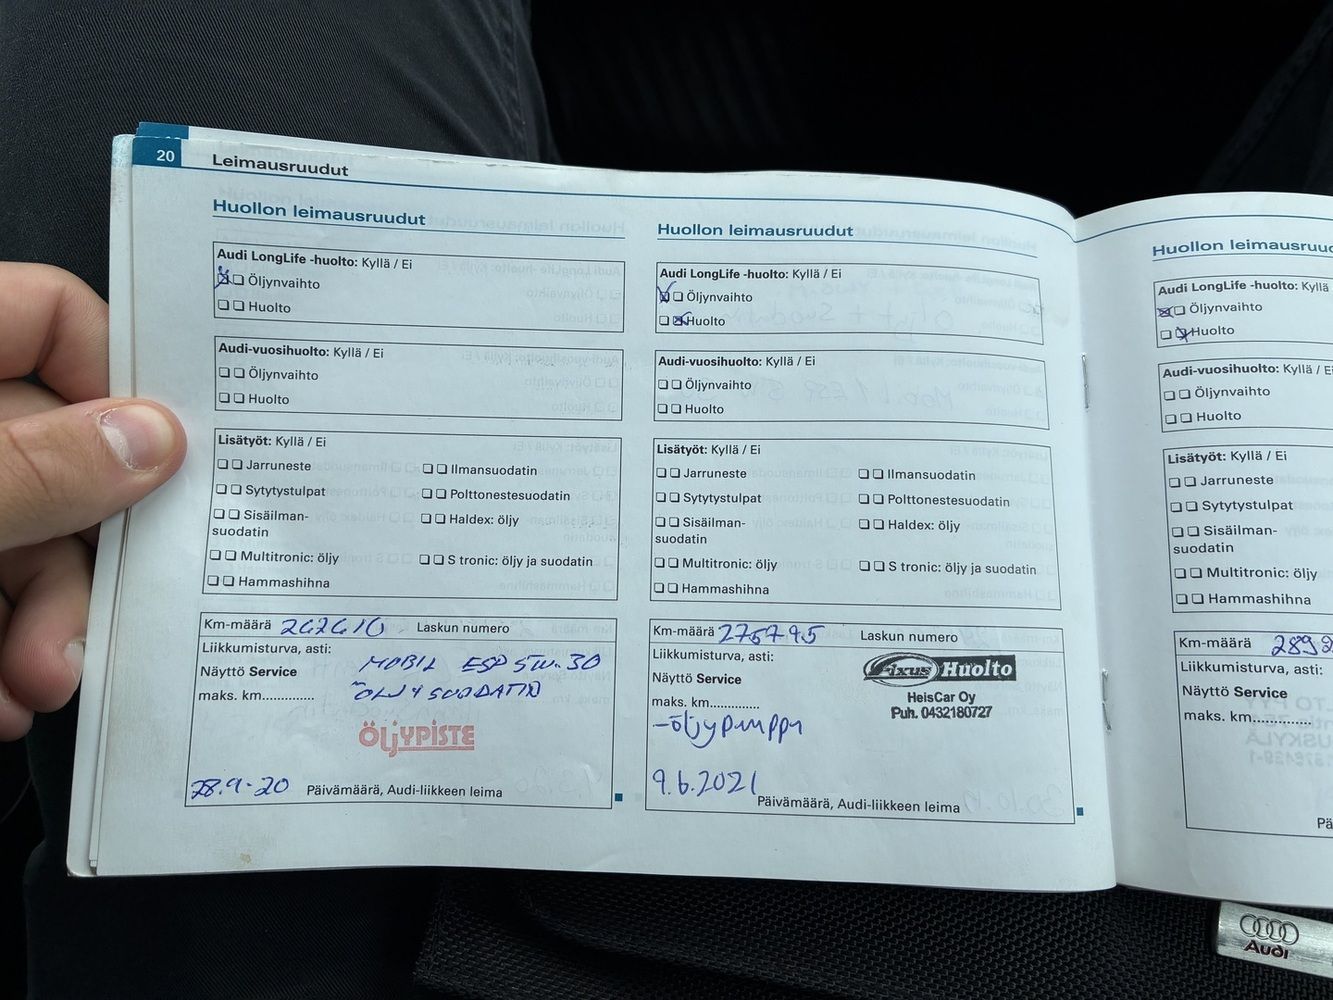 20 Leimausruudut
Huollon leimausruudut
Audi LongLife -huolto: Kyllä / Ei
Öljynvaihto
Huolto
Audi-vuosihuolto: Kyllä / Ei
Öljynvaihto
Huolto
Lisätyöt: Kyllä / Ei
Jarruneste Ilmansuodatin
Sytytystulpat Polttonestesuodatin
Sisäilman- Haldex: öljy
suodatin
Multitronic: öljy S tronic: öljy ja suodatin
Hammashihna
Km-määrä 262610 Laskun numero
Liikkumisturva, asti:
MOBIL ESP 5W.30
Näyttö Service
ÖLJY SUODATIN
maks. km..............
ÖLJYPISTE
28.9-20 Päivämäärä, Audi-liikkeen leima
Huollon leimausruudut
Audi LongLife -huolto: Kyllä / Ei
Öljynvaihto
Huolto
Audi-vuosihuolto: Kyllä / Ei
Öljynvaihto
Huolto
Lisätyöt: Kyllä / Ei
Jarruneste Ilmansuodatin
Sytytystulpat Polttonestesuodatin
Sisäilman- Haldex: öljy
suodatin
Multitronic: öljy S tronic: öljy ja suodatin
Hammashihna
Km-määrä 275795 Laskun numero
Liikkumisturva, asti:
Fixus Huolto
Näyttö Service
HeisCar Oy
maks. km..............
Puh. 0432180727
-öljypumppu
9.6.2021
Päivämäärä, Audi-liikkeen leima
Huollon leimausruu
Audi LongLife -huolto: Kyllä
Öljynvaihto
Huolto
Audi-vuosihuolto: Kyllä / E
Öljynvaihto
Huolto
Lisätyöt: Kyllä / Ei
Jarruneste
Sytytystulpat
Sisäilman-
suodatin
Multitronic: öljy
Hammashihna
Km-määrä 2892
Liikkumisturva, asti:
Näyttö Service
maks. km..............
Pä
Audi